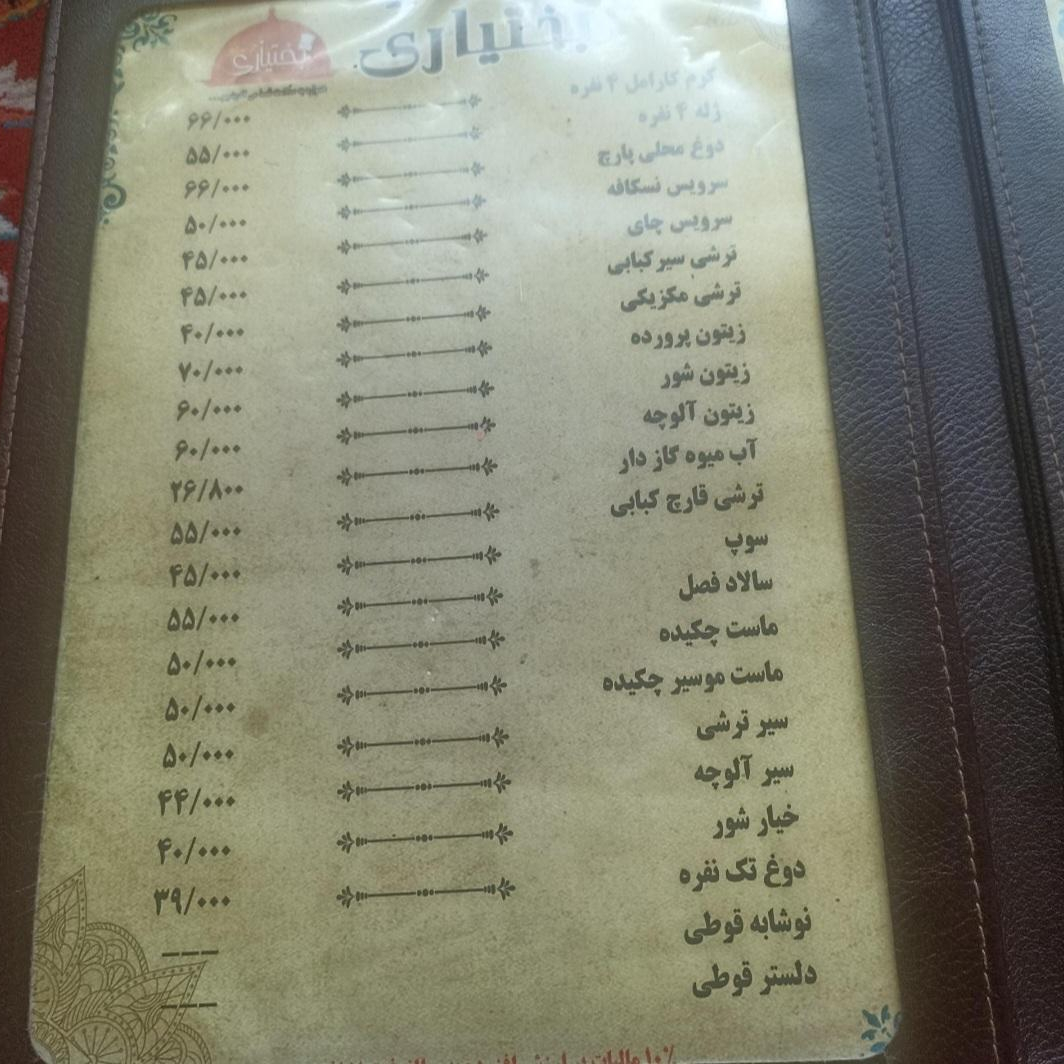 بختیاری
بختیاری
کرم کارامل ۴ نفره ۶۶/۰۰۰
ژله ۴ نفره ۵۵/۰۰۰
دوغ محلی پارچ ۶۶/۰۰۰
سرویس نسکافه ۵۰/۰۰۰
سرویس چای ۴۵/۰۰۰
ترشی سیر کبابی ۴۵/۰۰۰
ترشی مکزیکی ۴۰/۰۰۰
زیتون پرورده ۷۰/۰۰۰
زیتون شور ۶۰/۰۰۰
زیتون آلوچه ۶۰/۰۰۰
آب میوه گاز دار ۲۶/۸۰۰
ترشی قارچ کبابی ۵۵/۰۰۰
سوپ ۴۵/۰۰۰
سالاد فصل ۵۵/۰۰۰
ماست چکیده ۵۰/۰۰۰
ماست موسیر چکیده ۵۰/۰۰۰
سیر ترشی ۵۰/۰۰۰
سیر آلوچه ۴۴/۰۰۰
خیار شور ۴۰/۰۰۰
دوغ تک نفره ۳۹/۰۰۰
نوشابه قوطی ---
دلستر قوطی ---
۱۰٪ مالیات بر ارزش